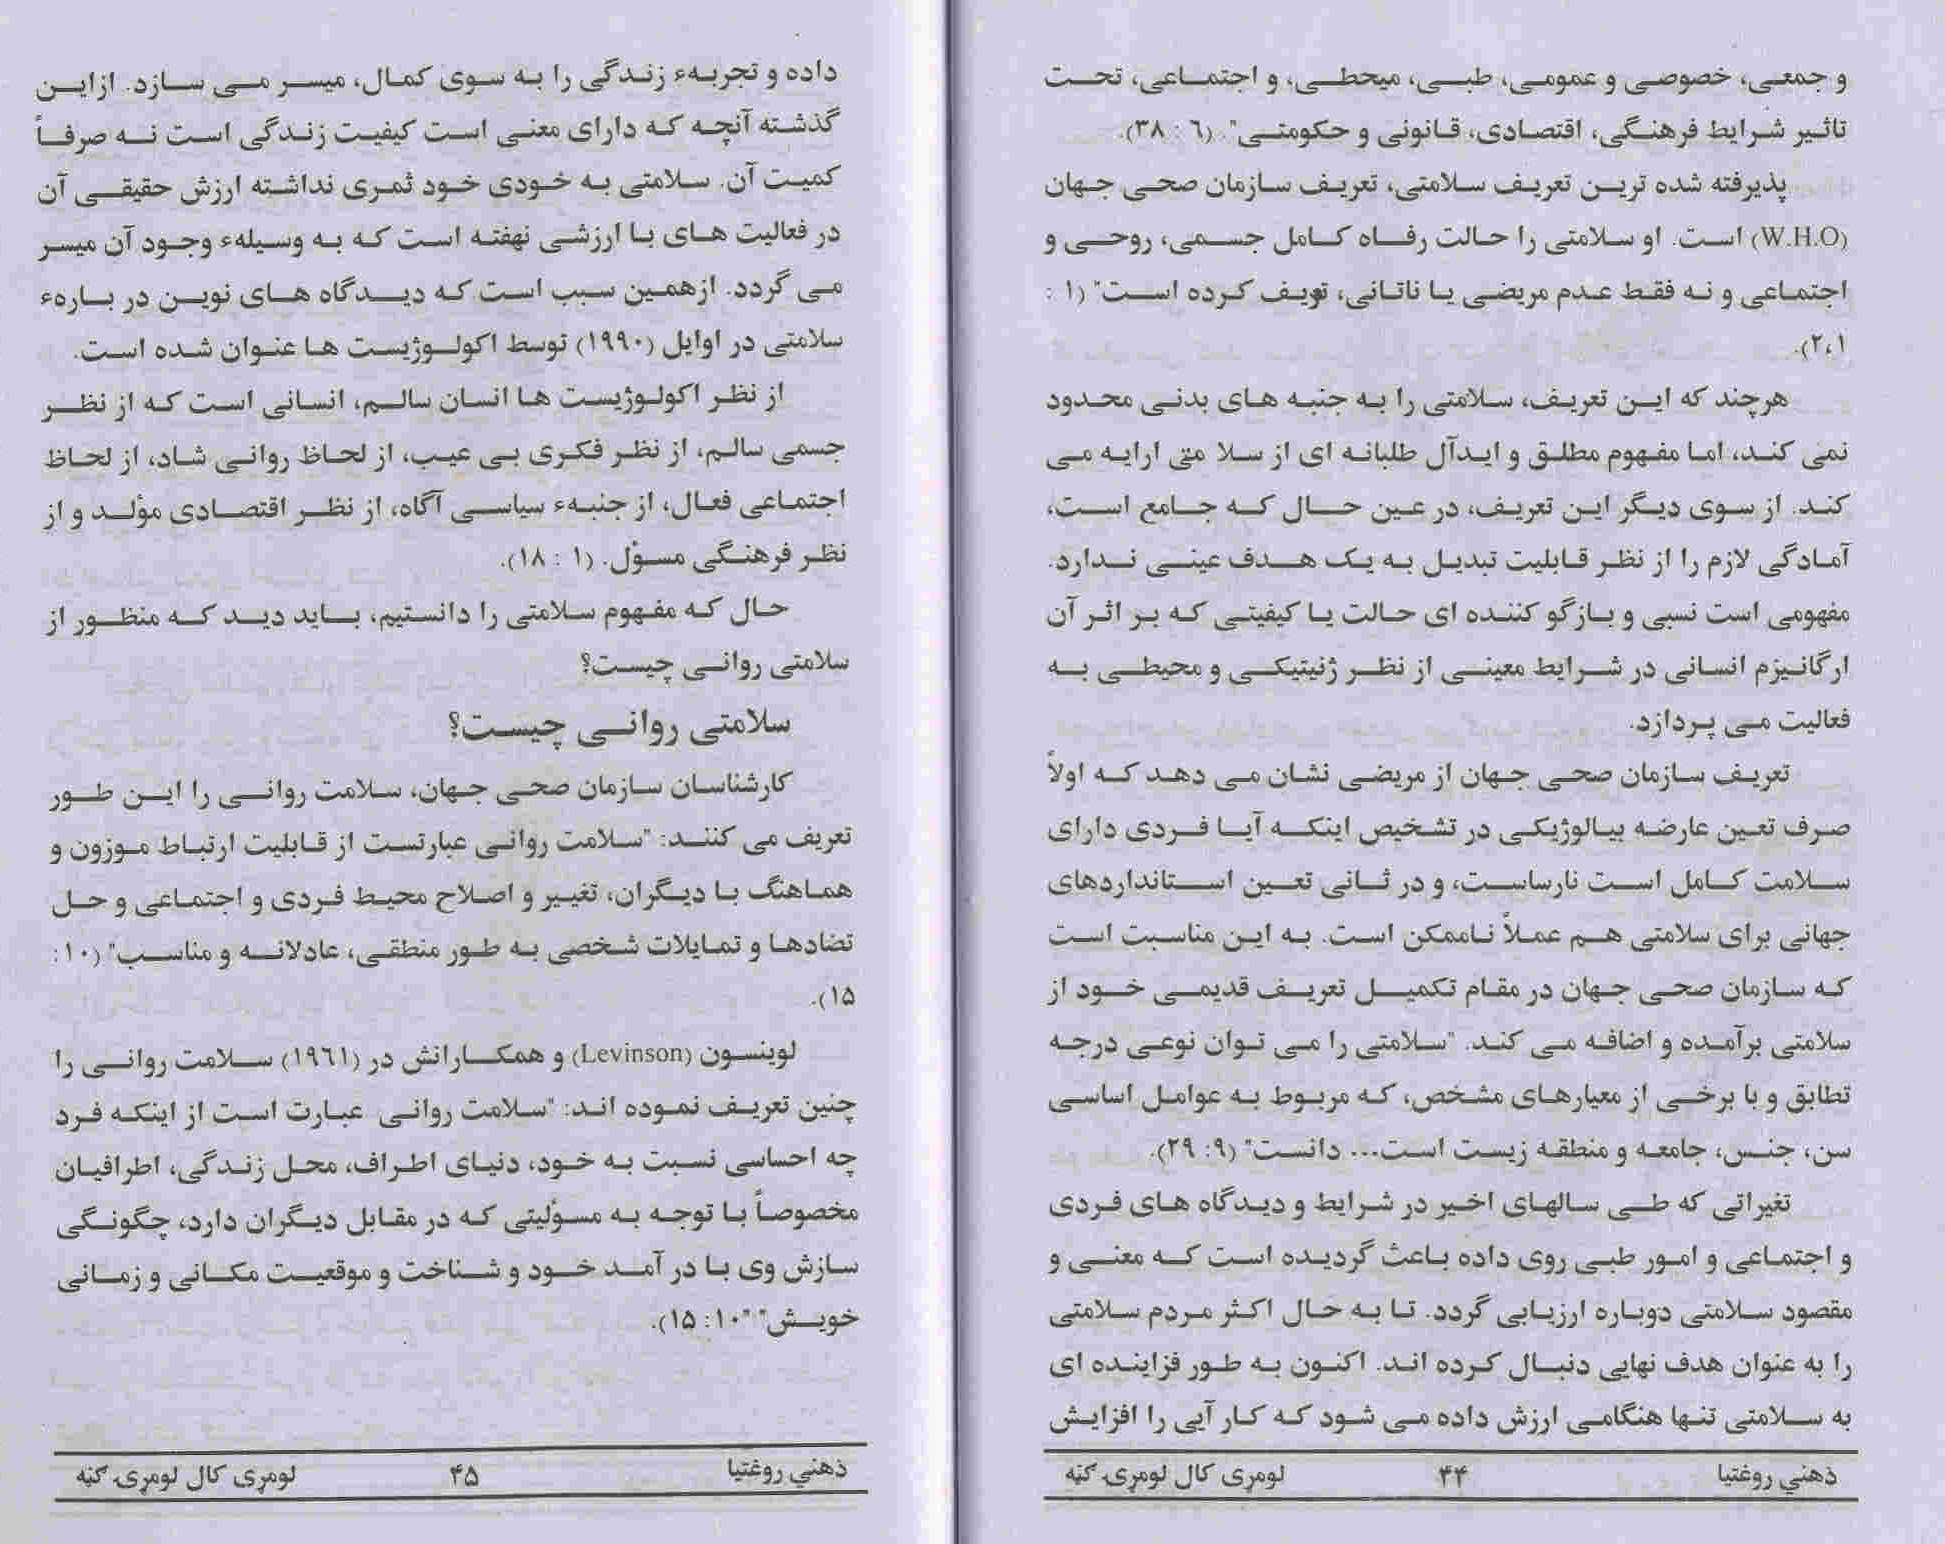 و جمعی، خصوصی و عمومی، طبی، میحطی، و اجتماعی، تحت
تاثیر شرایط فرهنگی، اقتصادی، قانونی و حکومتی". (٦ : ٣٨).
پذیرفته شده ترین تعریف سلامتی، تعریف سازمان صحی جهان
(W.H.O) است. او سلامتی را حالت رفاه کامل جسمی، روحی و
اجتماعی و نه فقط عدم مریضی یا ناتانی، تویف کرده است" (١ :
٢،١).
هرچند که این تعریف، سلامتی را به جنبه های بدنی محدود
نمی کند، اما مفهوم مطلق و ایدآل طلبانه ای از سلا متی ارایه می
کند. از سوی دیگر این تعریف، در عین حال که جامع است،
آمادگی لازم را از نظر قابلیت تبدیل به یک هدف عینی ندارد.
مفهومی است نسبی و بازگو کننده ای حالت یا کیفیتی که بر اثر آن
ارگانیزم انسانی در شرایط معینی از نظر ژنیتیکی و محیطی به
فعالیت می پردازد.
تعریف سازمان صحی جهان از مریضی نشان می دهد که اولاً
صرف تعین عارضه بیالوژیکی در تشخیص اینکه آیا فردی دارای
سلامت کامل است نارساست، و در ثانی تعین استانداردهای
جهانی برای سلامتی هم عملاً ناممکن است. به این مناسبت است
که سازمان صحی جهان در مقام تکمیل تعریف قدیمی خود از
سلامتی برآمده و اضافه می کند. "سلامتی را می توان نوعی درجه
تطابق و با برخی از معیارهای مشخص، که مربوط به عوامل اساسی
سن، جنس، جامعه و منطقه زیست است... دانست" (٩: ٢٩).
تغیراتی که طی سالهای اخیر در شرایط و دیدگاه های فردی
و اجتماعی و امور طبی روی داده باعث گردیده است که معنی و
مقصود سلامتی دوباره ارزیابی گردد. تا به حال اکثر مردم سلامتی
را به عنوان هدف نهایی دنبال کرده اند. اکنون به طور فزاینده ای
به سلامتی تنها هنگامی ارزش داده می شود که کار آیی را افزایش
ذهني روغتیا ۴۴ لومړی کال لومړۍ ګڼه
داده و تجربهء زندگی را به سوی کمال، میسر می سازد. ازاین
گذشته آنچه که دارای معنی است کیفیت زندگی است نه صرفاً
کمیت آن. سلامتی به خودی خود ثمری نداشته ارزش حقیقی آن
در فعالیت های با ارزشی نهفته است که به وسیلهء وجود آن میسر
می گردد. ازهمین سبب است که دیدگاه های نوین در بارهء
سلامتی در اوایل (١٩٩٠) توسط اکولوژیست ها عنوان شده است.
از نظر اکولوژیست ها انسان سالم، انسانی است که از نظر
جسمی سالم، از نظر فکری بی عیب، از لحاظ روانی شاد، از لحاظ
اجتماعی فعال، از جنبهء سیاسی آگاه، از نظر اقتصادی مؤلد و از
نظر فرهنگی مسؤل. (١ : ١٨).
حال که مفهوم سلامتی را دانستیم، باید دید که منظور از
سلامتی روانی چیست؟
سلامتی روانی چیست؟
کارشناسان سازمان صحی جهان، سلامت روانی را این طور
تعریف می کنند: "سلامت روانی عبارتست از قابلیت ارتباط موزون و
هماهنگ با دیگران، تغیر و اصلاح محیط فردی و اجتماعی و حل
تضادها و تمایلات شخصی به طور منطقی، عادلانه و مناسب" (١٠ :
١۵).
لوینسون (Levinson) و همکارانش در (١٩٦١) سلامت روانی را
چنین تعریف نموده اند: "سلامت روانی عبارت است از اینکه فرد
چه احساسی نسبت به خود، دنیای اطراف، محل زندگی، اطرافیان
مخصوصاً با توجه به مسؤلیتی که در مقابل دیگران دارد، چگونگی
سازش وی با در آمد خود و شناخت و موقعیت مکانی و زمانی
خویش" "١٠ : ١۵).
ذهني روغتیا ۴۵ لومړی کال لومړۍ ګڼه